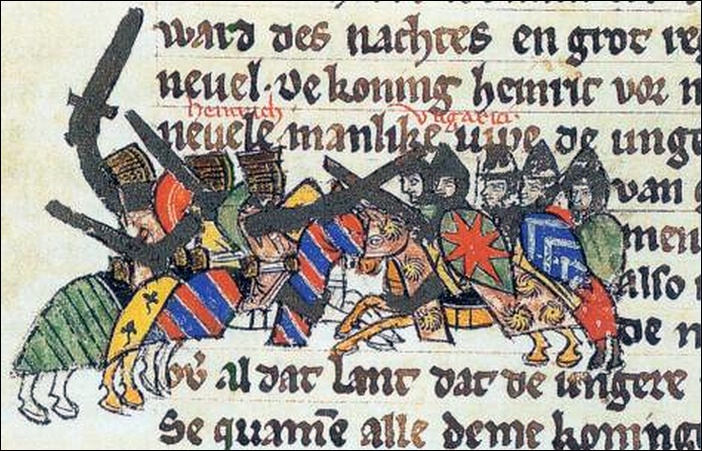 ward des nachtes en grot re
neuel. De koning heinric vor
heinrich vngaria
neuele manlike uppe de unge
van
men
also
de n
Al dat lant dat de ungere
Se quamē alle deme koning